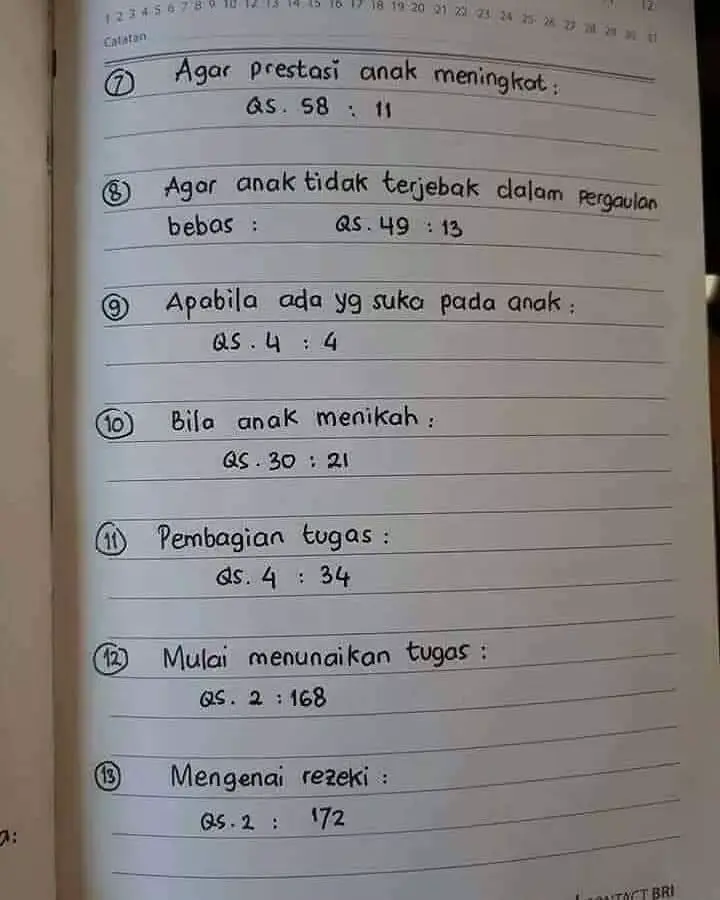 12
1 2 3 4 5 6 7 8 9 10 12 13 14 15 16 17 18 19 20 21 22 23 24 25 26 27 28 29 30 31
Catatan
7 Agar prestasi anak meningkat :
QS. 58 : 11
8 Agar anak tidak terjebak dalam pergaulan
bebas : QS. 49 : 13
9 Apabila ada yg suka pada anak :
QS. 4 : 4
10 Bila anak menikah :
QS. 30 : 21
11 Pembagian tugas :
QS. 4 : 34
12 Mulai menunaikan tugas :
QS. 2 : 168
13 Mengenai rezeki :
QS. 2 : 172
a:
CONTACT BRI